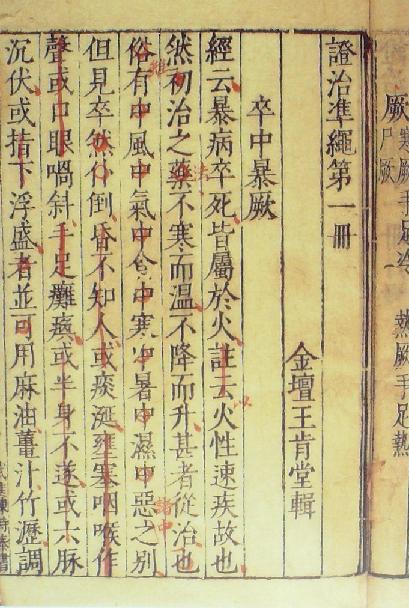 厥 寒厥手足冷 熱厥手足熱
尸厥
證治準繩第一冊
金壇王肯堂輯
卒中暴厥
經云暴病卒死皆屬於火註云火性速疾故也
以
然初治之藥不寒而溫不降而升甚者從治也
法
俗有中風中氣中食中寒中暑中濕中惡之別
雖
諸中
但見卒然仆倒昏不知人或痰涎壅塞咽喉作
聲或口眼喎斜手足癱瘓或半身不遂或六脉
沉伏或指下浮盛者並可用麻油薑汁竹瀝調